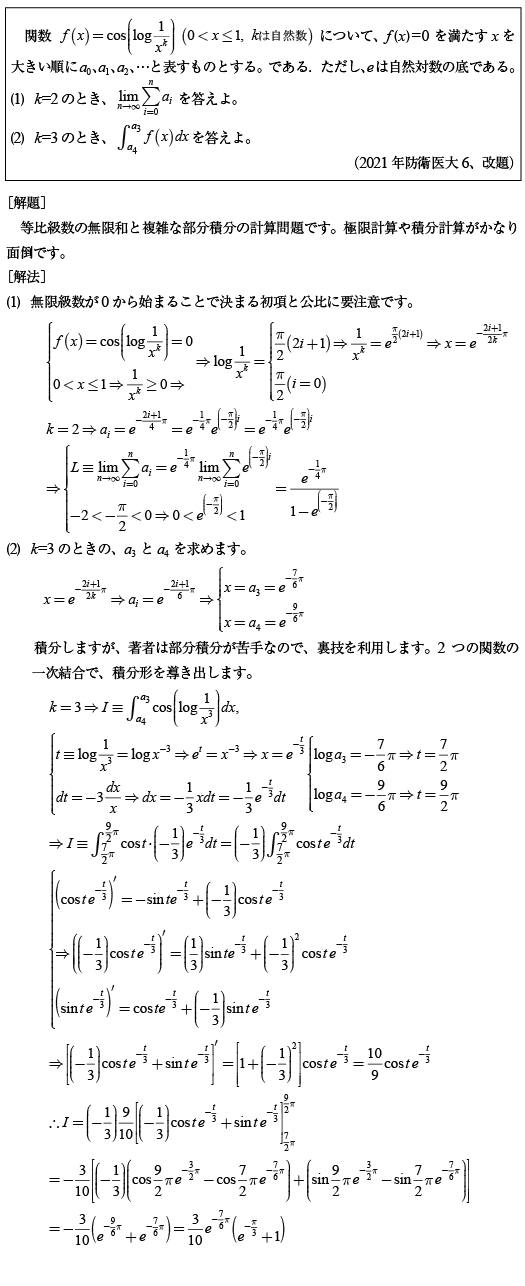 関数 f(x)=cos(log 1/x^k) (0<x≤1, kは自然数) について、f(x)=0 を満たす x を
大きい順にa₀、a₁、a₂、…と表すものとする。である. ただし、eは自然対数の底である。
(1) k=2のとき、 lim_{n→∞} Σ_{i=0}^{n} a_i を答えよ。
(2) k=3のとき、 ∫_{a₄}^{a₃} f(x)dx を答えよ。
(2021年防衛医大6、改題)
[解題]
等比級数の無限和と複雑な部分積分の計算問題です。極限計算や積分計算がかなり
面倒です。
[解法]
(1) 無限級数が0から始まることで決まる初項と公比に要注意です。
{ f(x)=cos(log 1/x^k)=0
0<x≤1⇒1/x^k≥0⇒ ⇒log 1/x^k = { π/2(2i+1)⇒1/x^k=e^{π/2(2i+1)}⇒x=e^{-(2i+1)/2k π}
π/2(i=0)
k=2⇒a_i=e^{-(2i+1)/4 π}=e^{-1/4 π}e^{(-π/2)i}=e^{-1/4 π}e^{(-π/2)i}
⇒{ L≡lim_{n→∞} Σ_{i=0}^{n} a_i=e^{-1/4 π} lim_{n→∞} Σ_{i=0}^{n} e^{(-π/2)i}
-2<-π/2<0⇒0<e^{(-π/2)}<1 = e^{-1/4 π}/(1-e^{(-π/2)})
(2) k=3のときの、a₃とa₄を求めます。
x=e^{-(2i+1)/2k π}⇒a_i=e^{-(2i+1)/6 π}⇒{ x=a₃=e^{-7/6 π}
x=a₄=e^{-9/6 π}
積分しますが、著者は部分積分が苦手なので、裏技を利用します。2つの関数の
一次結合で、積分形を導き出します。
k=3⇒I≡∫_{a₄}^{a₃} cos(log 1/x³)dx,
{ t≡log 1/x³=log x^{-3}⇒e^t=x^{-3}⇒x=e^{-t/3} { log a₃=-7/6 π⇒t=7/2 π
dt=-3 dx/x⇒dx=-1/3 xdt=-1/3 e^{-t/3}dt log a₄=-9/6 π⇒t=9/2 π
⇒I≡∫_{7/2 π}^{9/2 π} cos t·(-1/3)e^{-t/3}dt=(-1/3)∫_{7/2 π}^{9/2 π} cos t e^{-t/3}dt
{ (cos t e^{-t/3})′=-sin t e^{-t/3}+(-1/3)cos t e^{-t/3}
⇒((-1/3)cos t e^{-t/3})′=(1/3)sin t e^{-t/3}+(-1/3)² cos t e^{-t/3}
(sin t e^{-t/3})′=cos t e^{-t/3}+(-1/3)sin t e^{-t/3}
⇒[(-1/3)cos t e^{-t/3}+sin t e^{-t/3}]′=[1+(-1/3)²]cos t e^{-t/3}=10/9 cos t e^{-t/3}
∴I=(-1/3)9/10[(-1/3)cos t e^{-t/3}+sin t e^{-t/3}]_{7/2 π}^{9/2 π}
=-3/10[(-1/3)(cos 9/2 π e^{-3/2 π}-cos 7/2 π e^{-7/6 π})+(sin 9/2 π e^{-3/2 π}-sin 7/2 π e^{-7/6 π})]
=-3/10(e^{-9/6 π}+e^{-7/6 π})=3/10 e^{-7/6 π}(e^{-π/3}+1)